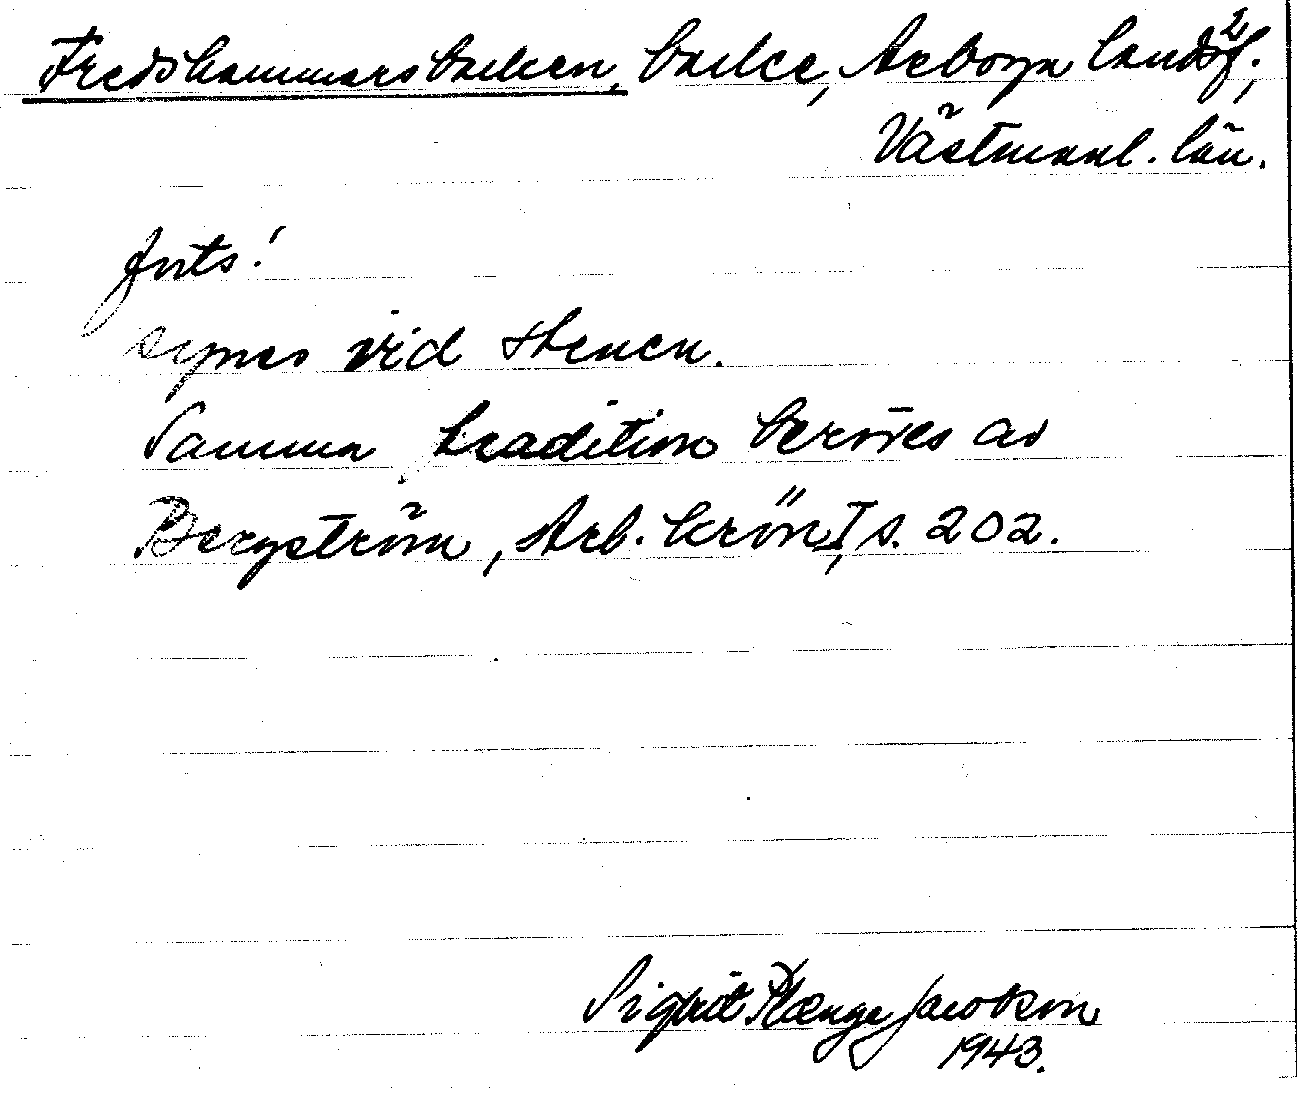 Fredshammarsbacken, backe, Arboga landsf. 2,
Västmanl. län.
forts!
synes vid stenen.
Samma tradition beröres av
Bergström, Arb. krön I, s. 202.
Sigrid Plænge Jacobson
1943.